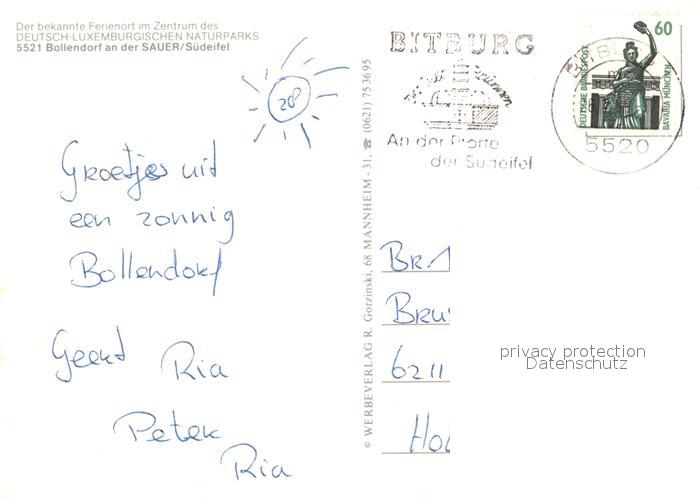 Der bekannte Ferienort im Zentrum des
DEUTSCH-LUXEMBURGISCHEN NATURPARKS
5521 Bollendorf an der SAUER/Südeifel
28°
Groetjes uit
een zonnig
Bollendorf
Geert Ria
Peter
Ria
© WERBEVERLAG R. Gorzinski, 68 MANNHEIM - 31, ☎ (0621) 753695
BITBURG
An der Pforte
der Südeifel
5520
60
DEUTSCHE BUNDESPOST
BAVARIA MÜNCHEN
Br.
Bru
6211
Ho
privacy protection
Datenschutz